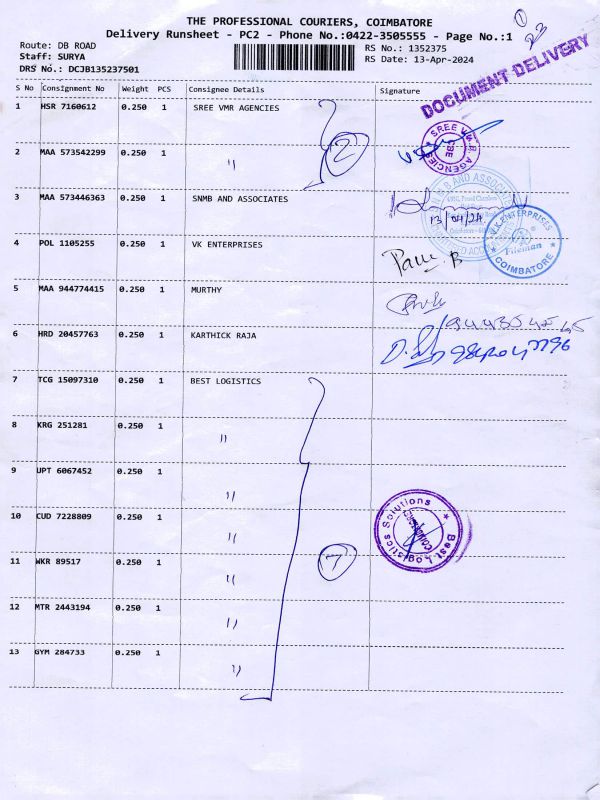 THE PROFESSIONAL COURIERS, COIMBATORE
Delivery Runsheet - PC2 - Phone No.:0422-3505555 - Page No.:1
Route: DB ROAD
RS No.: 1352375
Staff: SURYA
RS Date: 13-Apr-2024
DRS No.: DCJB135237501
DOCUMENT DELIVERY
S No Consignment No Weight PCS Consignee Details Signature
1 HSR 7160612 0.250 1 SREE VMR AGENCIES
2
2 MAA 573542299 0.250 1 "
3 MAA 573446363 0.250 1 SNMB AND ASSOCIATES
13/04/24
4 POL 1105255 0.250 1 VK ENTERPRISES
V.K.ENTERPRISES
COIMBATORE
5 MAA 944774415 0.250 1 MURTHY
6 HRD 20457763 0.250 1 KARTHICK RAJA
7 TCG 15097310 0.250 1 BEST LOGISTICS
8 KRG 251281 0.250 1 "
9 UPT 6067452 0.250 1 "
10 CUD 7228809 0.250 1 "
Best Logistics Solutions
11 WKR 89517 0.250 1 "
7
12 MTR 2443194 0.250 1 "
13 GYM 284733 0.250 1 "